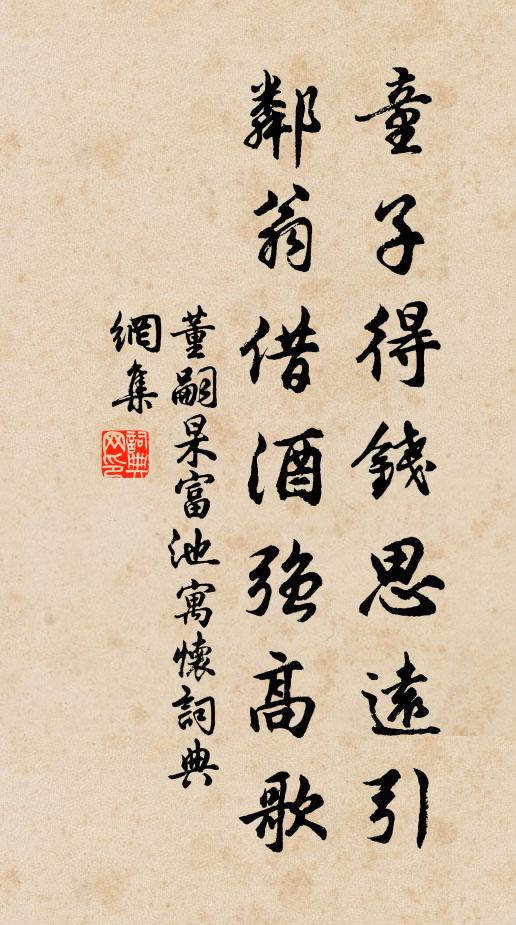 童子得錢思遠引
鄰翁借酒強高歌
董嗣杲富池寓懷詞典
網集
詞典
网印